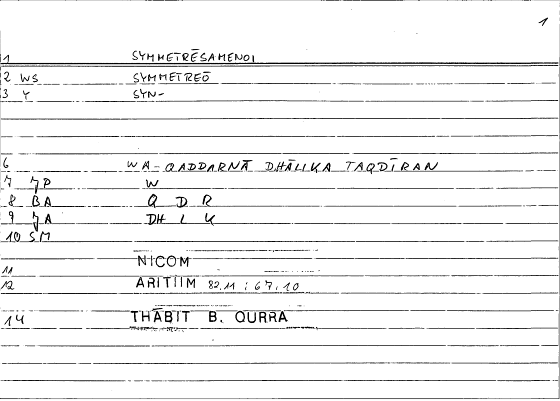 1
1 SYMMETRĒSAMENOI
2 WS SYMMETREŌ
3 Y SYN-
6 WA-QADDARNĀ DHĀLIKA TAQDĪRAN
7 JP W
8 BA Q D R
9 JA DH L K
10 SM
11 NICOM
12 ARITIIM 82,11 : 67,10
14 THĀBIT B. QURRA